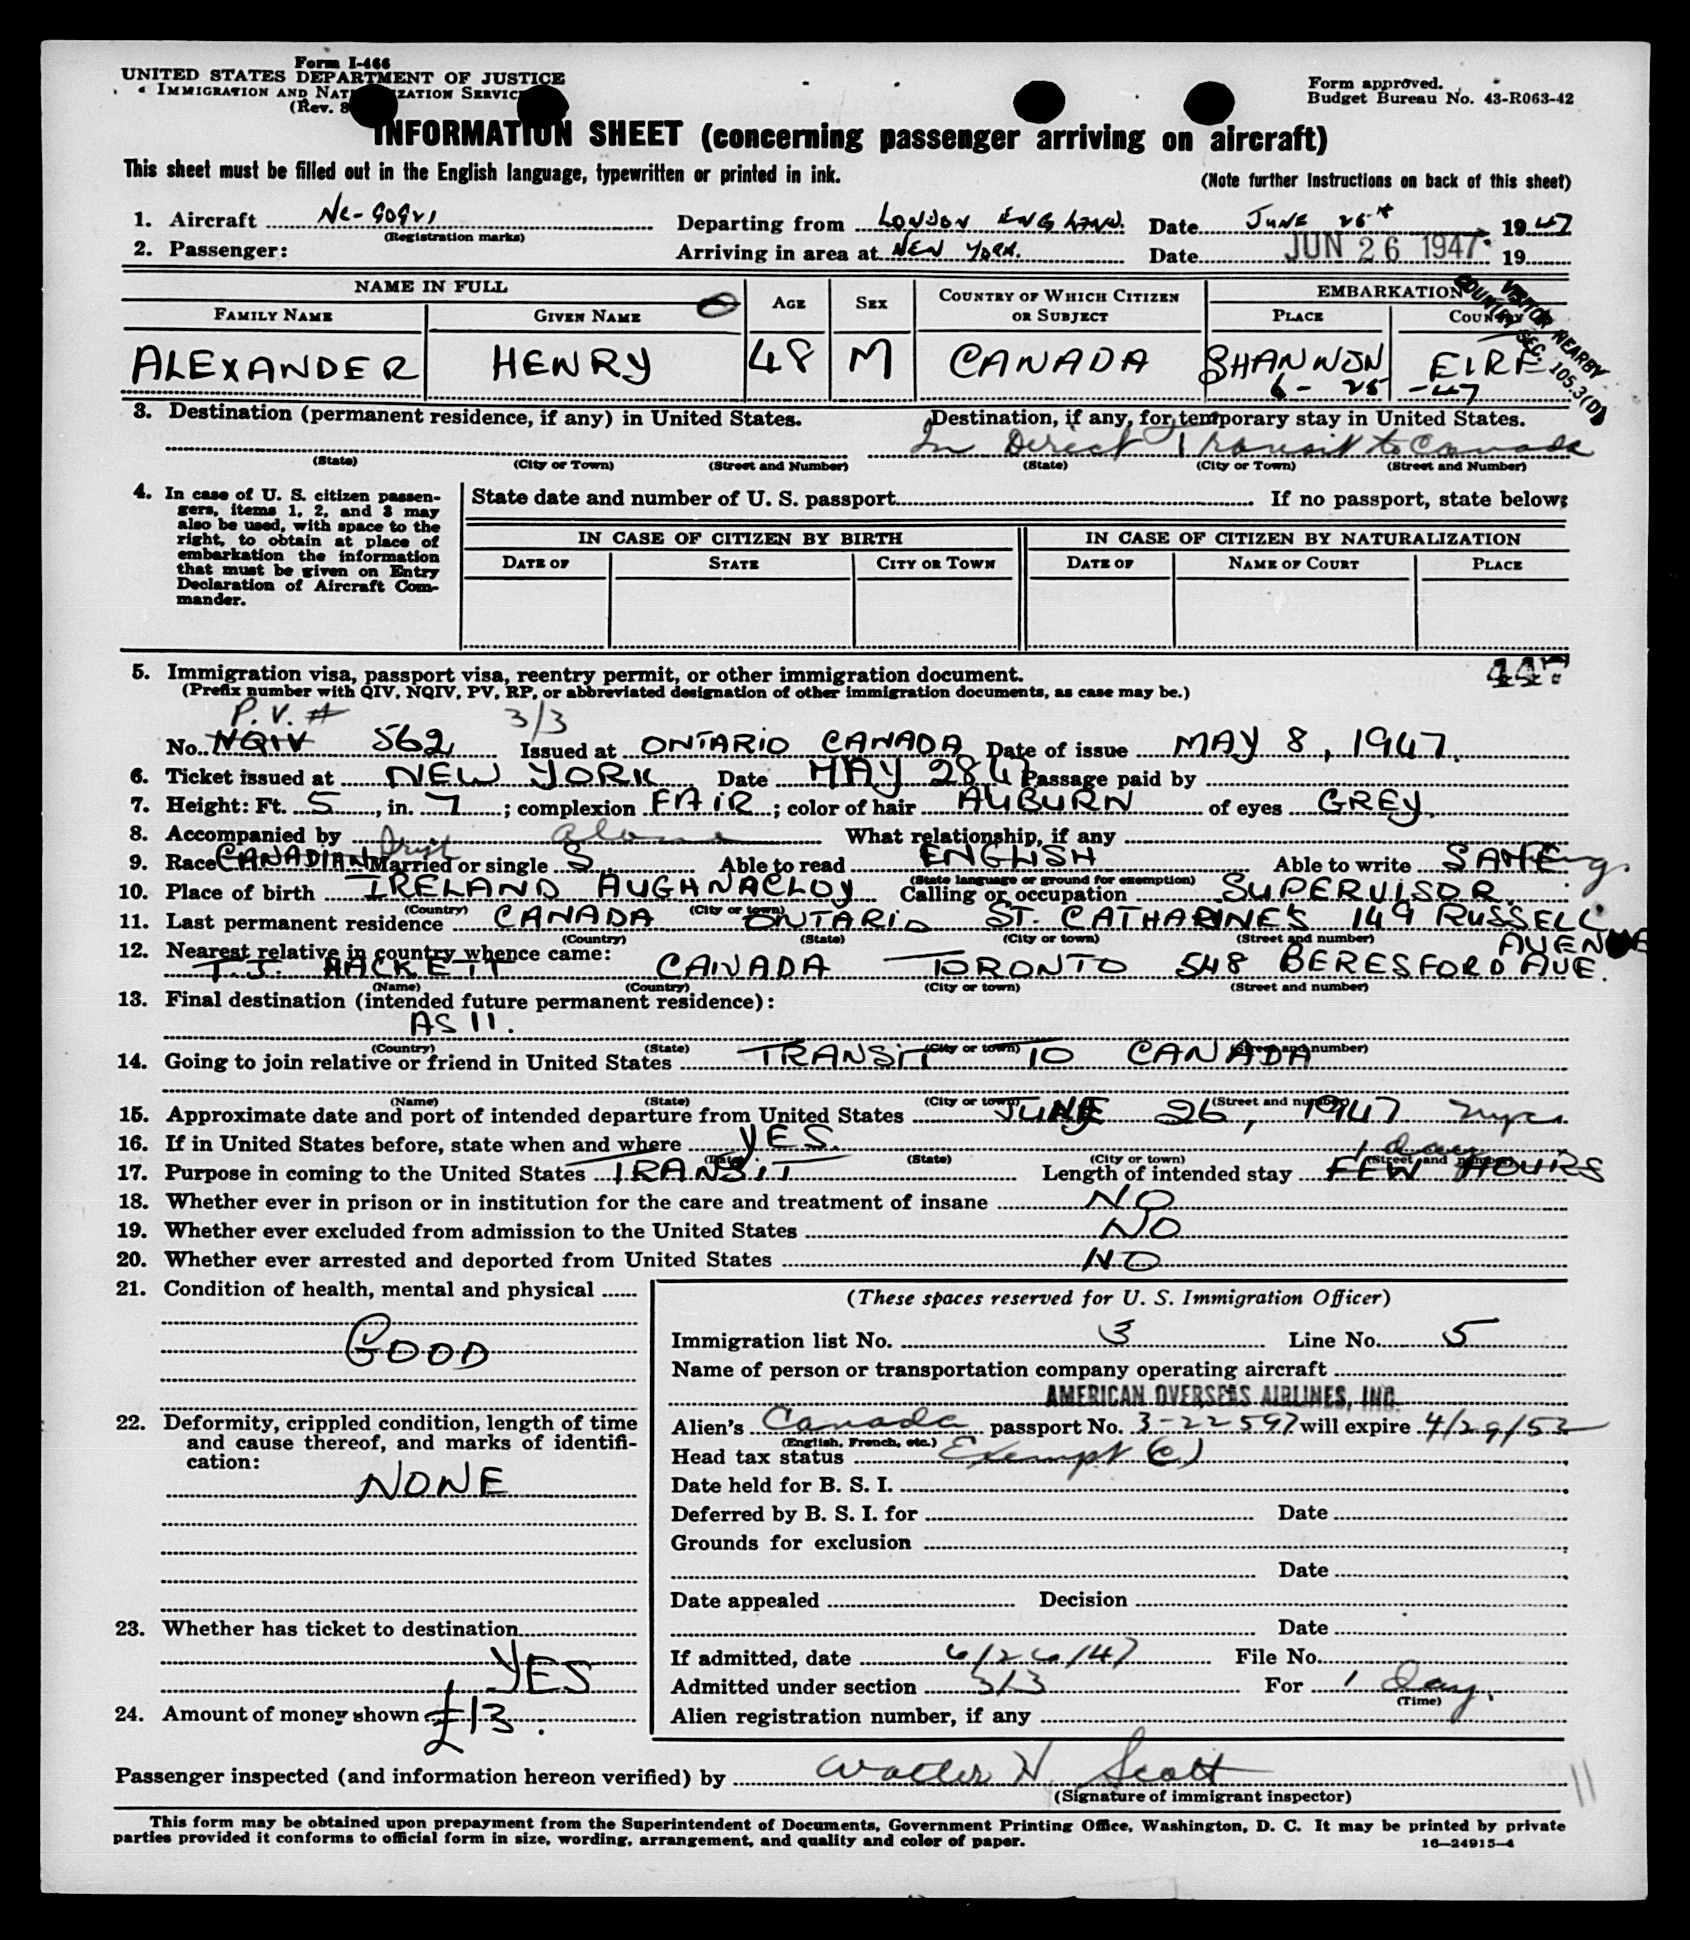 Form I-466
UNITED STATES DEPARTMENT OF JUSTICE
IMMIGRATION AND NAT IZATION SERVIC
(Rev. 8
Form approved.
Budget Bureau No. 43-R063-42
INFORMATION SHEET (concerning passenger arriving on aircraft)
This sheet must be filled out in the English language, typewritten or printed in ink.
(Note further Instructions on back of this sheet)
1. Aircraft NC-90921 Departing from LONDON ENGLAND. Date JUNE 25th 1947
(Registration marks)
2. Passenger: Arriving in area at NEW YORK. Date JUN 26 1947 19
NAME IN FULL AGE SEX COUNTRY OF WHICH CITIZEN OR SUBJECT EMBARKATION
FAMILY NAME GIVEN NAME PLACE COUNTRY
VISITOR NEARBY
COUNTRY SEC. 105.3(D)
ALEXANDER HENRY 48 M CANADA SHANNON EIRE
6 - 25 - 47
3. Destination (permanent residence, if any) in United States. Destination, if any, for temporary stay in United States.
In Direct Transit to Canada
(State) (City or Town) (Street and Number) (State) (City or Town) (Street and Number)
4. In case of U. S. citizen passengers, items 1, 2, and 3 may also be used, with space to the right, to obtain at place of embarkation the information that must be given on Entry Declaration of Aircraft Commander.
State date and number of U. S. passport If no passport, state below:
IN CASE OF CITIZEN BY BIRTH IN CASE OF CITIZEN BY NATURALIZATION
DATE OF STATE CITY OR TOWN DATE OF NAME OF COURT PLACE
5. Immigration visa, passport visa, reentry permit, or other immigration document.
(Prefix number with QIV, NQIV, PV, RP, or abbreviated designation of other immigration documents, as case may be.)
P. V. # 3/3
No. NQIV 562 Issued at ONTARIO CANADA Date of issue MAY 8, 1947.
6. Ticket issued at NEW YORK Date MAY 28 47 Passage paid by
7. Height: Ft. 5, in. 7; complexion FAIR; color of hair AUBURN of eyes GREY.
8. Accompanied by alone What relationship, if any
Irish
9. Race CANADIAN Married or single S Able to read ENGLISH Able to write SAME Eng.
(State language or ground for exemption)
10. Place of birth IRELAND AUGHNACLOY Calling or occupation SUPERVISOR
(Country) (City or town)
11. Last permanent residence CANADA ONTARIO ST. CATHARINE'S 149 RUSSELL AVENUE
(Country) (State) (City or town) (Street and number)
12. Nearest relative in country whence came:
T.J. HACKETT CANADA TORONTO 548 BERESFORD AVE.
(Name) (Country) (City or town) (Street and number)
13. Final destination (intended future permanent residence):
AS 11.
(Country) (State) (City or town) (Street and number)
14. Going to join relative or friend in United States TRANSIT TO CANADA
(Name) (State) (City or town) (Street and number)
15. Approximate date and port of intended departure from United States JUNE 26, 1947 nyc
16. If in United States before, state when and where YES.
(Date) (State) (City or town) (Street and number)
1 day
17. Purpose in coming to the United States TRANSIT Length of intended stay FEW HOURS
18. Whether ever in prison or in institution for the care and treatment of insane NO
19. Whether ever excluded from admission to the United States NO
20. Whether ever arrested and deported from United States NO
21. Condition of health, mental and physical
GOOD
22. Deformity, crippled condition, length of time and cause thereof, and marks of identification:
NONE
23. Whether has ticket to destination
YES
24. Amount of money shown £13.
(These spaces reserved for U. S. Immigration Officer)
Immigration list No. 3 Line No. 5
Name of person or transportation company operating aircraft
AMERICAN OVERSEAS AIRLINES, INC.
Alien's Canada passport No. 3-22597 will expire 4/29/52
(English, French, etc.)
Head tax status Exempt (c)
Date held for B. S. I.
Deferred by B. S. I. for Date
Grounds for exclusion
Date
Date appealed Decision
Date
If admitted, date 6/26/47 File No.
Admitted under section 3/3 For 1 Day.
(Time)
Alien registration number, if any
Passenger inspected (and information hereon verified) by Walter H. Scott
(Signature of immigrant inspector)
11
This form may be obtained upon prepayment from the Superintendent of Documents, Government Printing Office, Washington, D. C. It may be printed by private
parties provided it conforms to official form in size, wording, arrangement, and quality and color of paper.
16—24915-4